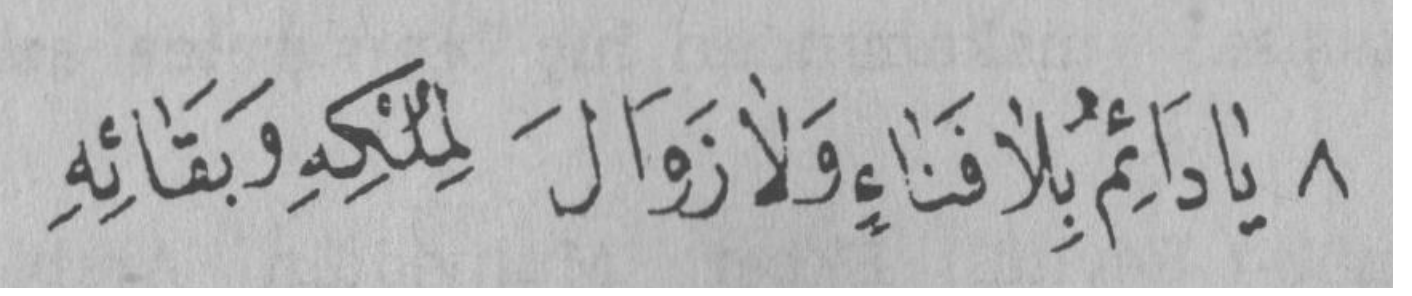 ٨ يَا دَائِمُ بِلَا فَنَاءٍ وَلَا زَوَالَ لِمُلْكِهِ وَبَقَائِهِ